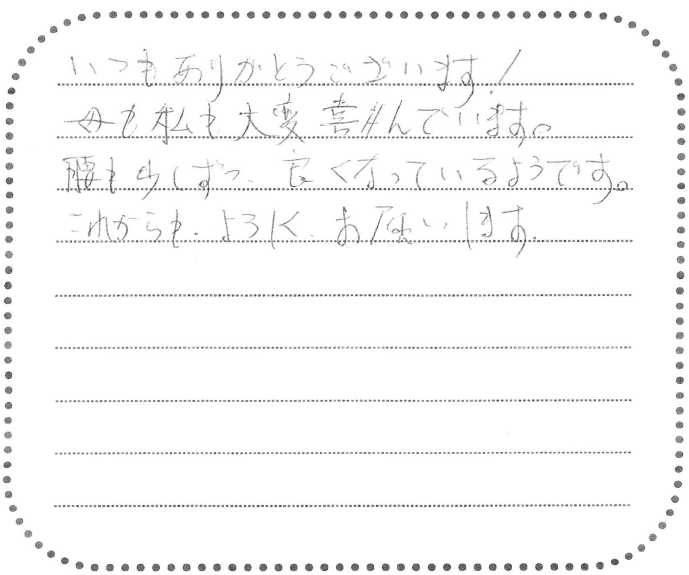 いつもありがとうございます!
母も私も大変喜んでいます。
腰も少しずつ、良くなっているようです。
これからも、よろしく、お願いします。